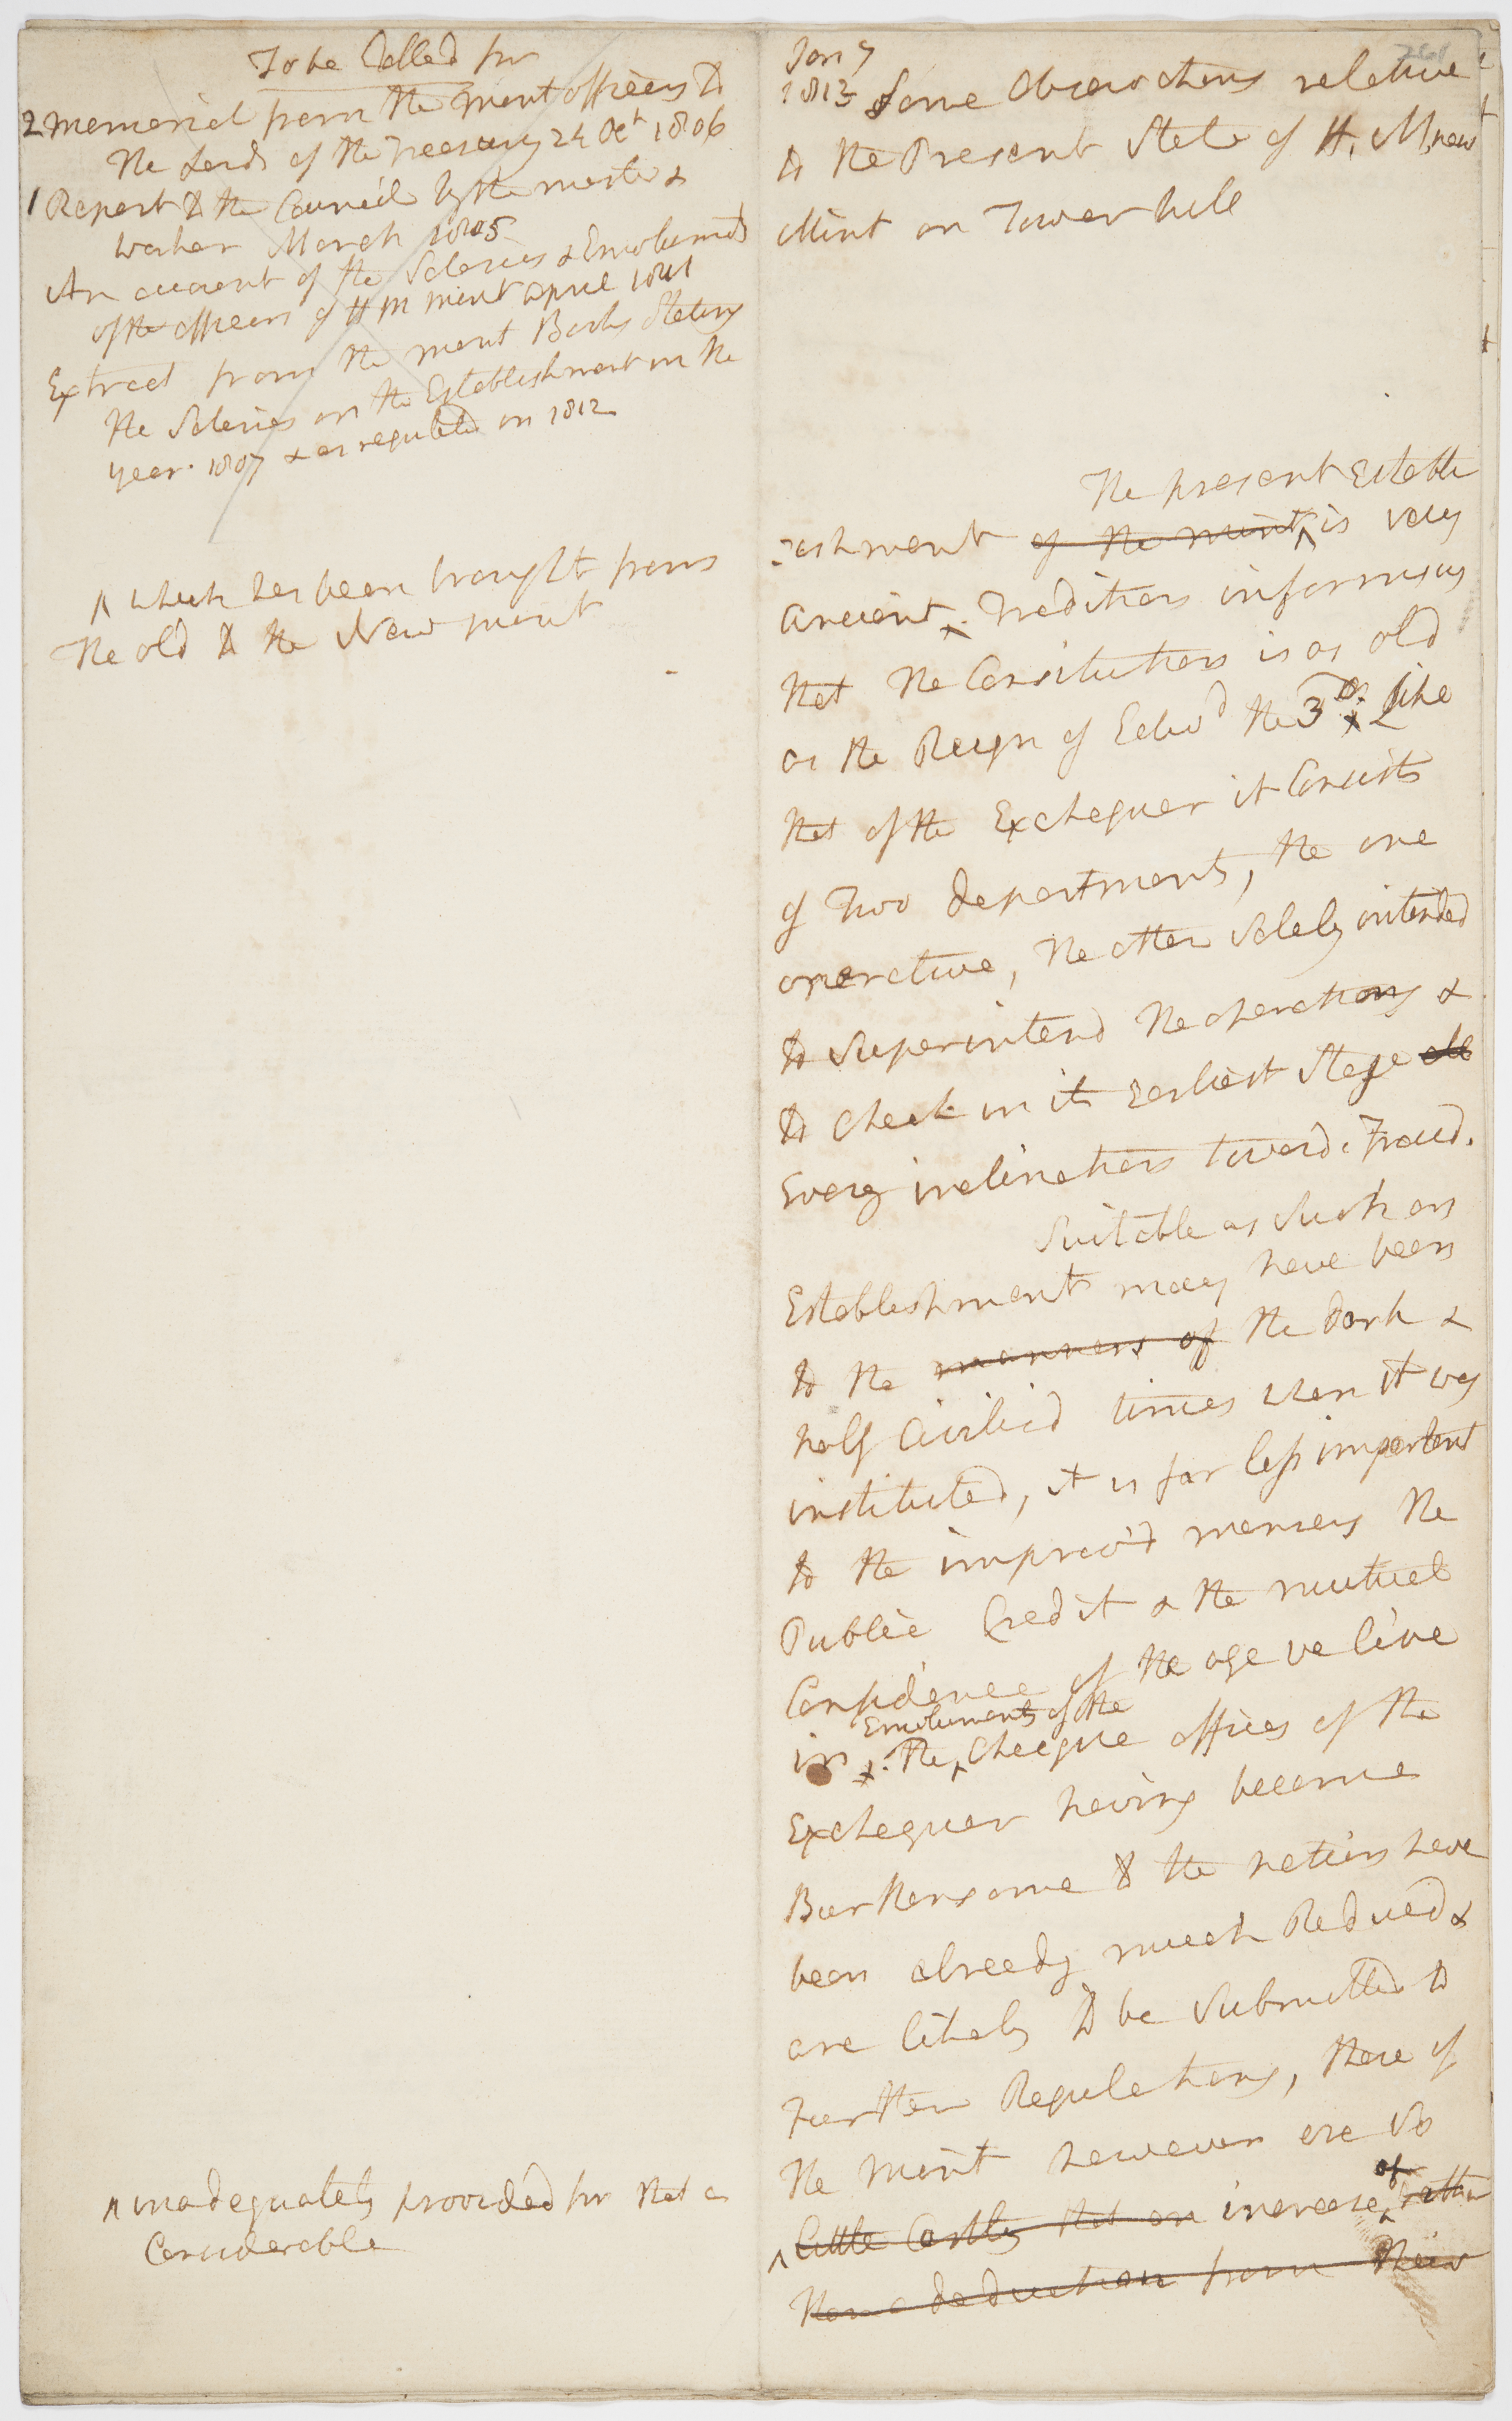 To be Called for
2 Memorial from the Mint officers to
the Lords of the Treasury 24 Oct 1806
1 Report to the Council by the master &
worker March 1805
An account of the Salaries & Emoluments
of the officers of H M Mint April 1801
Extract from the Mint Books Stating
the Salaries on the Establishment in the
year 1807 & as regulated in 1812
^ which has been brought from
the old to the New mint
^ inadequately provided for that a
Considerable
Jany
1813 Some Observations relative
to the Present State of H. M. new
Mint on Tower hill
The present Establi
:ishment of the mint ^ is very
ancient ^. Tradition informs us
that the Constitution is as old
as the Reign of Edwd the 3rd Like
that of the Exchequer it Consists
of Two departments, the one
operative, the other Solely intended
to Superintend the operations &
to Check in its Earliest Stage all
Every inclination toward. Fraud.
Suitable as Such an
Establishment may have been
to the manners of the dark &
half Civilizd times when it was
instituted, it is far less important
to the improv'd manners the
Public Credit & the mutual
Confidence of the age we live
in. The ^ Emoluments of the Cheque offices of the
Exchequer having become
Burthensome to the nation have
been already much Reduced &
are likely to be Submitted to
Further Regulations, those of
the Mint however are So
^ little Costly that an increase ^ of rather
than a deduction from their